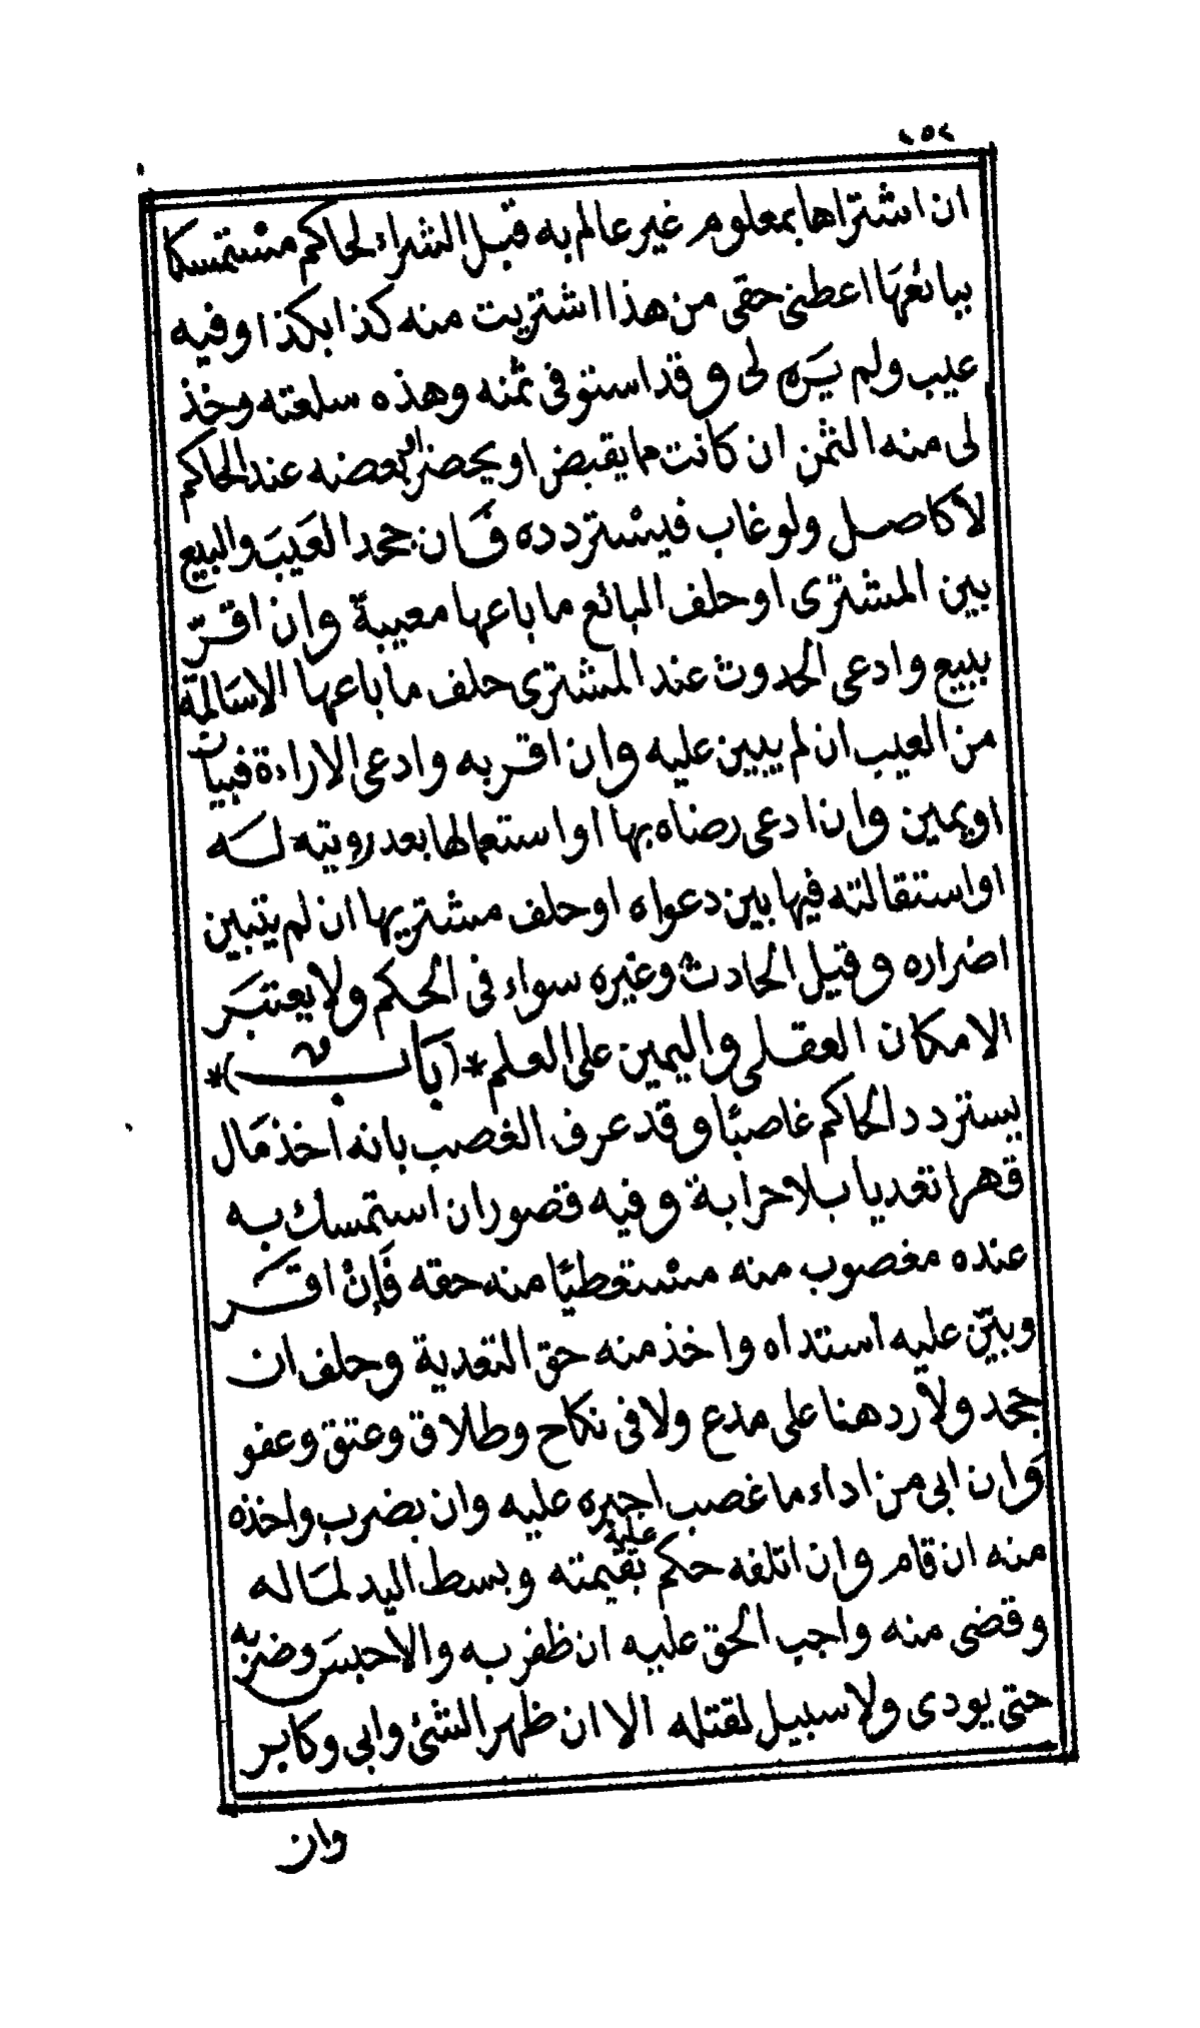 ٢٥٢
ان اشتراها بمعلوم غير عالم به قبل الشراء لحاكم مستمسكا
ببائعها اعطنى حقى من هذا اشتريت منه كذا بكذا وفيه
عيب ولم يَرَه لى وقد استوفى ثمنه وهذه سلعته وخذ
لى منه الثمن ان كانت مما يقبض او يحضر او بعضه عند الحاكم
لا كاصل ولو غاب فيستردده فان جحد العيب والبيع
بين المشترى او حلف البائع ما باعها معيبة وان اقرّ
ببيع وادعى الحدوث عند المشترى حلف ما باعها الا سالمة
من العيب ان لم يبين عليه وان اقر به وادعى الاراءة فبيان
او يمين وان ادعى رضاه بها او استعمالها بعد رويته لـه
او استقالته فيها بين دعواه او حلف مشتريها ان لم يتبين
اضراره وقيل الحادث وغيره سواء فى الحكم ولا يعتبر
الامكان العقلى واليمين على العلم *(باب)*
يستردد الحاكم غاصبًا وقد عرف الغصب بانه اخذ مال
قهرا تعديا بلا حرابة وفيه قصور ان استمسك به
عنده مغصوب منه مستعطيًا منه حقه فَإنْ اقر
وبيّن عليه استداه واخذ منه حق التعدية وحلف ان
جحد ولا رد هنا على مدع ولا فى نكاح وطلاق وعتق وعفو
وان ابى من اداء ما غصب اجبره عليه وان بضرب واخذه
منه ان قام وان اتلفه حكم عليه بقيمته وبسط اليد لما له
وقضى منه واجب الحق عليه ان ظفر به والا حبس وضربه
حتى يودى ولا سبيل لقتله الا ان ظهر الشئ وابى وكابر
وان